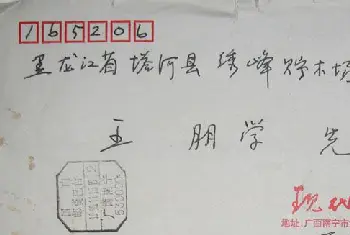 165206
黑龙江省塔河县绣峰贮木场
王朋学先
现代
地址:广西南宁市